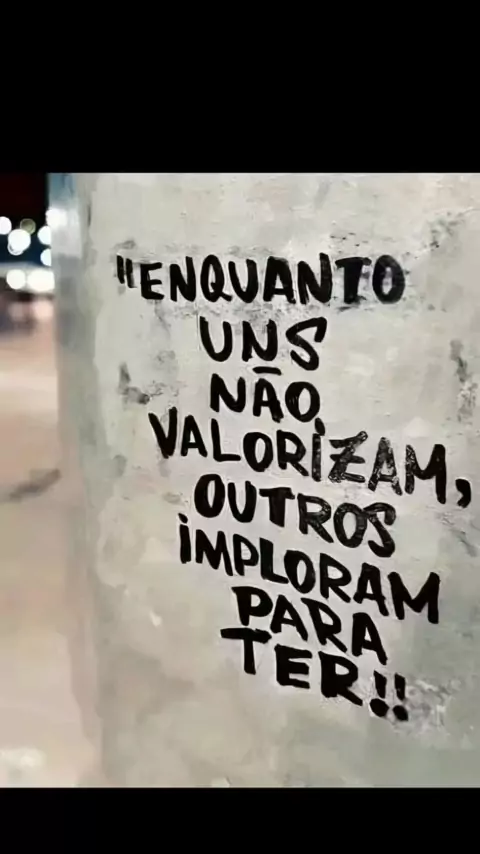 "ENQUANTO
UNS
NÃO
VALORIZAM,
OUTROS
IMPLORAM
PARA
TER!!